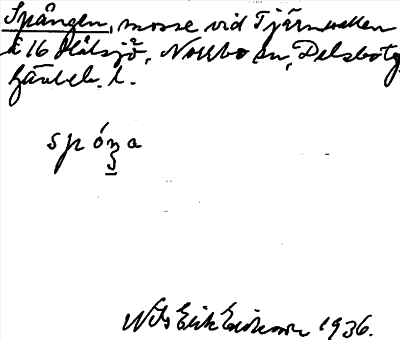 Spången, mosse vid Tjärnvallen
å 16 Hålsjö², Norrbo sn, Delsbo tg.
Gävleb. l.
spóŋa
Nils Erik Eriksson 1936.